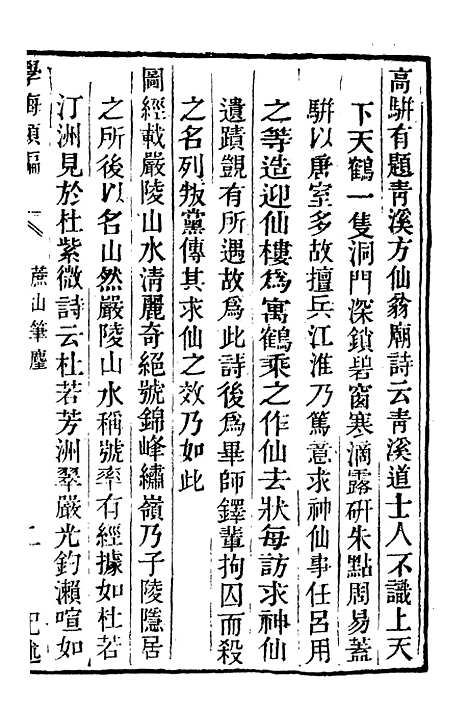 高駢有題青溪方仙翁廟詩云青溪道士人不識上天
下天鶴一隻洞門深鎖碧窗寒滴露研朱點周易蓋
駢以唐室多故擅兵江淮乃篤意求神仙事任呂用
之等造迎仙樓爲寓鶴乘之作仙去狀每訪求神仙
遺蹟覬有所遇故爲此詩後爲畢師鐸輩拘囚而殺
之名列叛黨傳其求仙之效乃如此
圖經載嚴陵山水清麗奇絕號錦峰繡嶺乃子陵隱居
之所後以名山然嚴陵山水稱號率有經據如杜若
汀洲見於杜紫微詩云杜若芳洲翠嚴光釣瀨喧如
學海類編 蔗山筆麈 二 記述